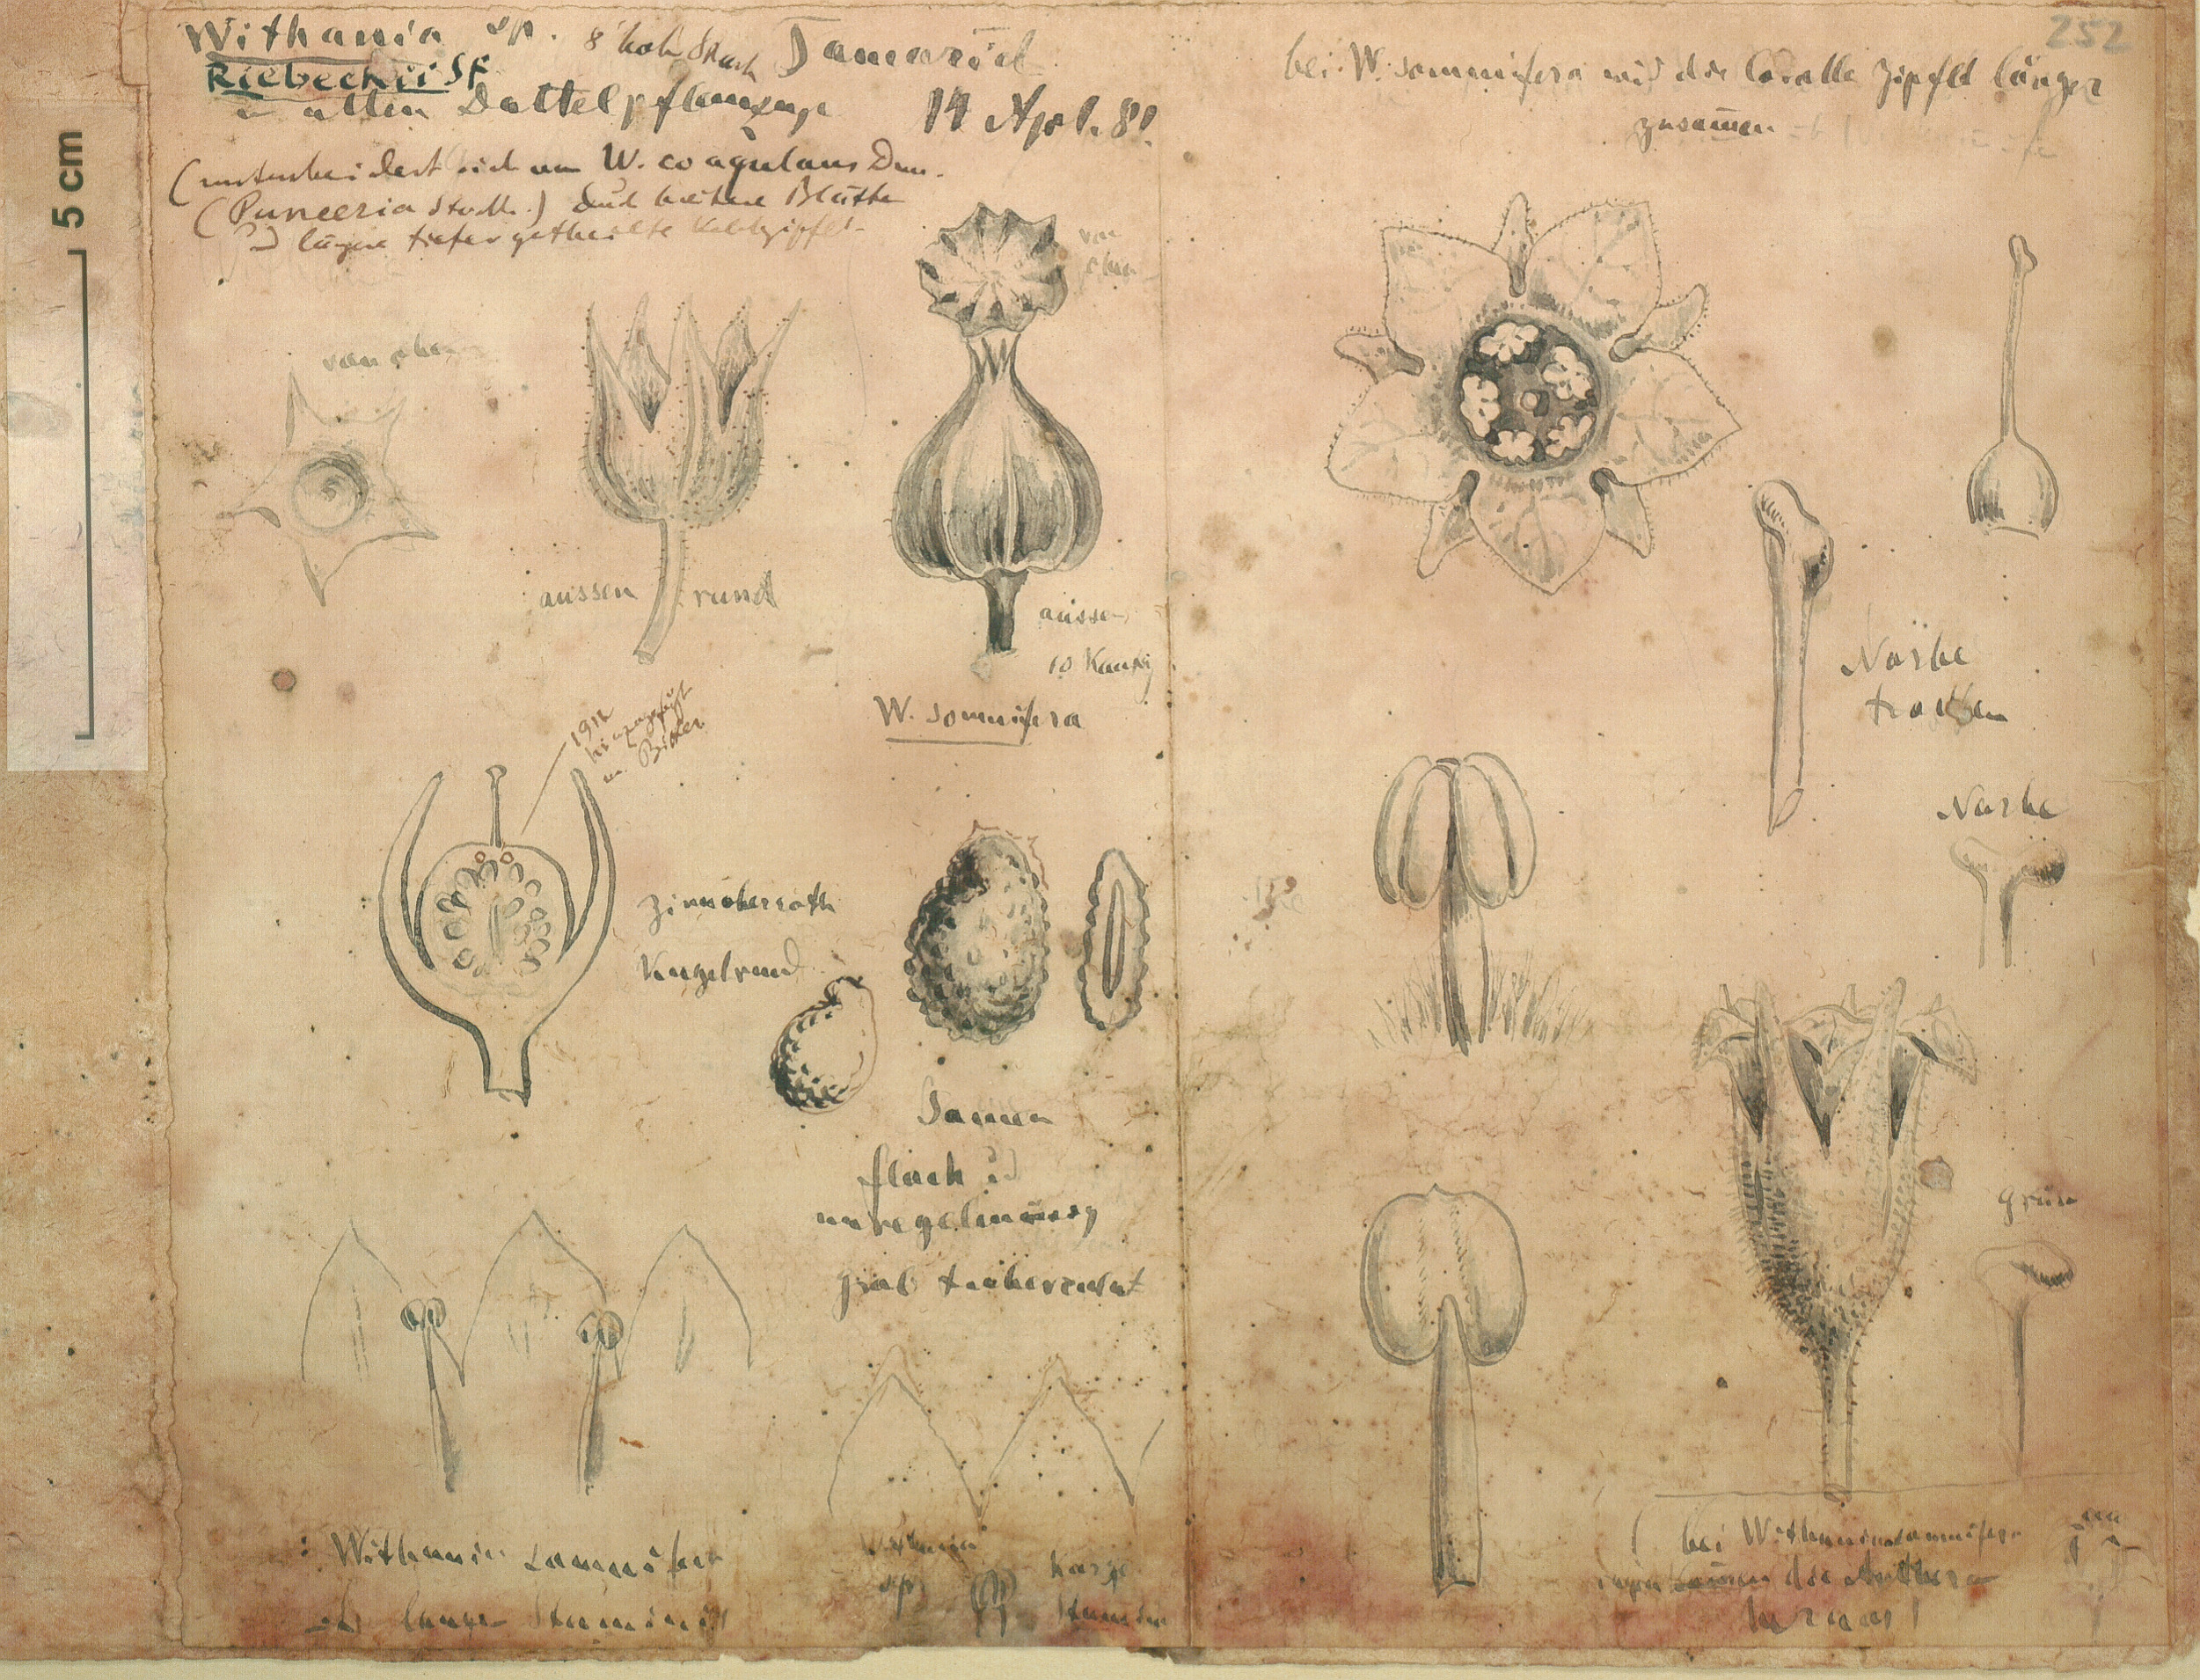 252
Withania sp. 8' hoh Strauch Tamarid
Riebeckii Sf
in alten Dattelpflanzung
14 Apl. 81
(unterscheidet sich von W. coagulans Dun.
(Puneeria Stocks.) durch breitere Blätter
und längere tiefer getheilte Kelchzipfel
bei W. somnifera sind die Corolle Zipfel länger
zusamen
5 cm
von oben
von oben
aussen rund
aussen
10 Kantig
W. somnifera
Narbe
trocken
1912
hinzugefügt
Narbe
Zinnoberroth
Kugelrund
Samen
flach und
unregelmässig
grob tuberculat
grün
Withania somnifera
lange Stamina
Withania
sp.
kurze
Stamina
bei Withania somnifera
die Anthere